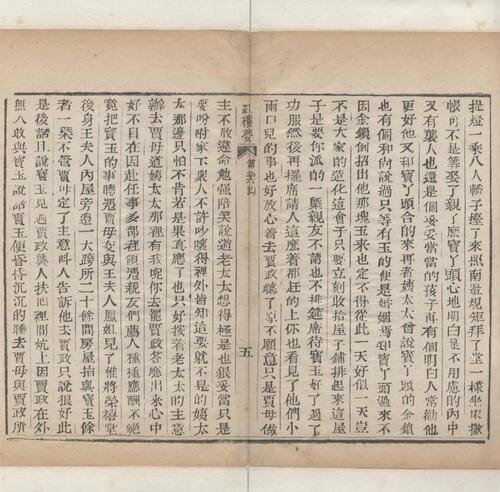 提燈一乘八人轎子擡了來照南邊規矩拜了堂一樣坐床撒
帳可不是算娶了親了麼寶丫頭心地明白是不用慮的內中
又有襲人也還是個妥妥當當的孩子再有個明白人常勸他
更好他又和寶丫頭合的來再者姨太太曾說寶丫頭的金鎖
也有個和尚說過只等有玉的便是婚姻焉知寶丫頭過來不
因金鎖倒招出他那塊玉來也定不得從此一天好似一天豈
不是大家的造化這會子只要立刻收拾屋子鋪排起來這屋
子是要你派的一槩親友不請也不排筵席待寶玉好了過了
功服然後再擺席請人這麼着都赶的上你也看見了他們小
兩口兒的事也好放心着去賈政聽了原不願意只是賈母做
紅樓夢
五
主不敢違命勉强陪笑說道老太太想得極是也狠妥當只是
要吩咐家下衆人不許吵嚷得裡外皆知這要就不是的姨太
太那邊只怕不肯若是果真應了也只好按着老太太的主意
辦去賈母道姨太太那裡有我呢你去罷賈政答應出來心中
好不自在因赴任事多部裡領憑親友們薦人種種應酬不絕
竟把寶玉的事聽憑賈母交與王夫人鳳姐兒了惟將榮禧堂
後身王夫人內屋旁邊一大跨所二十餘間房屋指與寶玉餘
者一槩不管賈母定了主意叫人告訴他去賈政只說狠好此
是後話且說寶玉見過賈政襲人扶回裡間炕上因賈政在外
無人敢與寶玉說話寶玉便昏昏沉沉的睡去賈母與賈政所